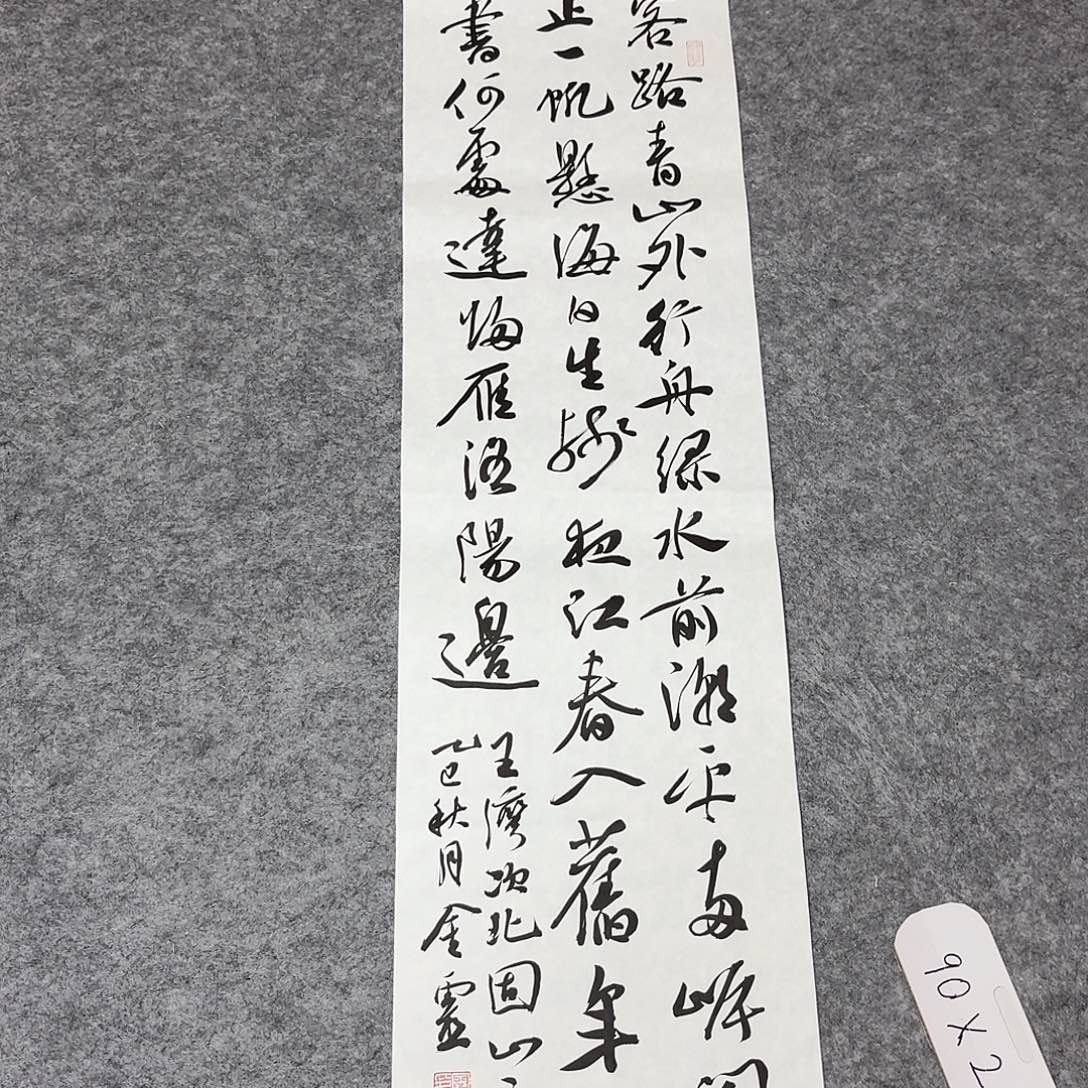 客路青山外行舟绿水前潮平两岸阔
正一帆懸海日生残夜江春入舊年
書何處達歸雁洛陽邊
王灣次北固山
乙巳秋月金靈
90x2